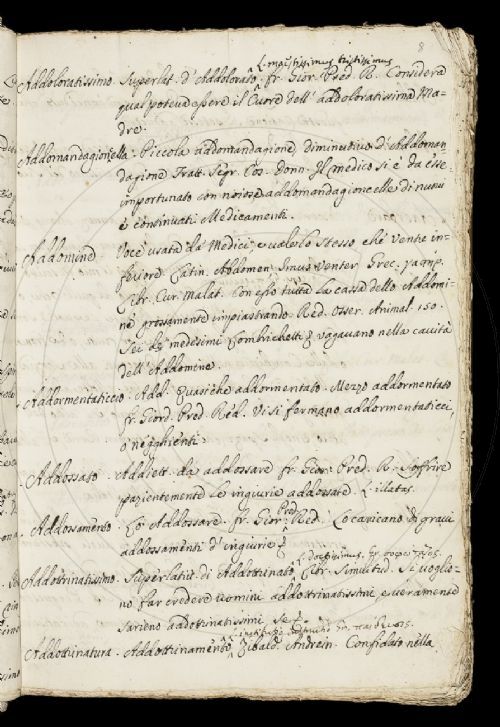 8
L. maestissimus tristissimus
Addoloratissimo. Superlat. d'Addolorato. fr. Gior. Pred. R. Considera
qual poteva essere il Cuore dell' addoloratissima Ma-
dre.
Addomandagioncella. Piccola addomandagione, diminutivo d'Addoman-
dagione Tratt. Segr. Cos. Donn. Il medico si è da esse
importunato con noiose addomandagioncelle di nuovi
e continuati Medicamenti.
Addomine. Voce usata da Medici, e vale lo stesso, che Ventre in-
feriore. Latin. Abdomen, Imus Venter Grec.
Libr. Cur. Malat. Con esso tutta la cassa dello Addomi-
ne grossamente impiastrando. Red. Osser. Animal. 150.
Sei de medesimi Lombrichetti vagavano nella cavità
dell' Addomine.
Addormentaticcio. Add. Quasichè addormentato. Mezzo addormentato
fr. Giord. Pred. Red. Vi si fermano addormentaticci,
o neghienti.
Addossato. Addiett. da addossare fr. Gior. Pred. R. Soffrire
pazientemente le ingiurie addossate. L. illatas.
Addossamento. Lo Addossare. fr. Gior. Pred. Red. Lo caricano di gravi
addossamenti d'ingiurie
L. doctissimus. gr.
Addottrinatissimo. Superlativ. di Addottrinato. Libr. Similitud. Si voglio-
no far credere uomini addottrinatissimi, e veramente
sarieno addottrinatissimi se
Addottrinatura. Addottrinamento. Zibald. Andrein. Confidato nella